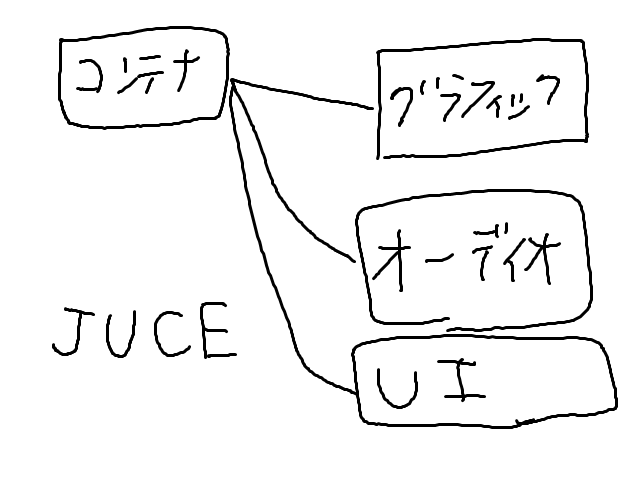 コンテナ
グラフィック
オーディオ
JUCE
UI